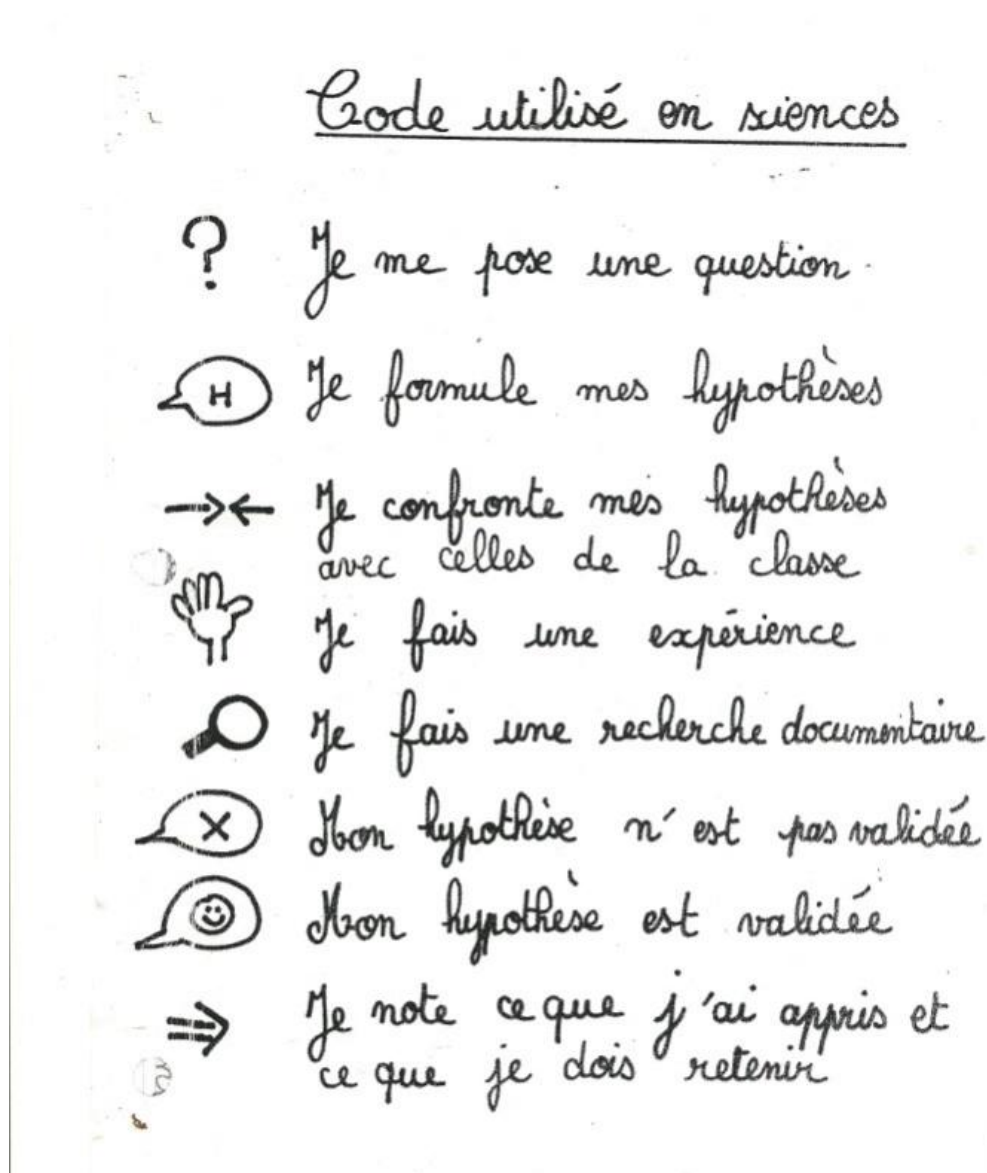 Code utilisé en sciences
? Je me pose une question.
H Je formule mes hypothèses
→← Je confronte mes hypothèses
avec celles de la classe
Je fais une expérience
Je fais une recherche documentaire
X Mon hypothèse n'est pas validée
Mon hypothèse est validée
⇒ Je note ce que j'ai appris et
ce que je dois retenir